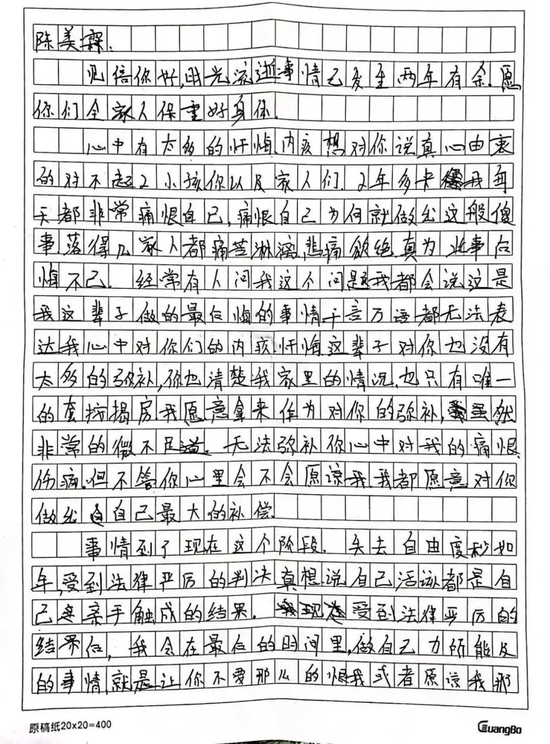 陈美霖.
见信你好,时光流逝事情已发生两年有余.愿
你们全家人保重好身体.
心中有太多的忏悔内疚想对你说真心由衷
的对不起2小孩你以及家人们.2年多来我每
天都非常痛恨自己,痛恨自己为何就做出这般傻
事落得几家人都痛苦淋漓,悲痛欲绝真为此事后
悔不已.经常有人问我这个问题我都会说这是
我这辈子做的最后悔的事情千言万语都无法表
达我心中对你们的内疚忏悔这辈子对你也没有
太多的弥补,你也清楚我家里的情况,也只有唯一
的套按揭房我愿意拿来作为对你的弥补,虽然
非常的微不足道.无法弥补你心中对我的痛恨
伤痛.但不管你心里会不会愿谅我我都愿意对你
做出自己最大的补偿.
事情到了现在这个阶段.失去自由度秒如
年,受到法律严厉的判决真想说自己活该都是自
己亲手触成的结果.受到法律严厉的
结果后,我会在最后的时间里,做自己力所能及
的事情,就是让你不要那么的恨我或者原谅我那
原稿纸20×20=400
GuangBo